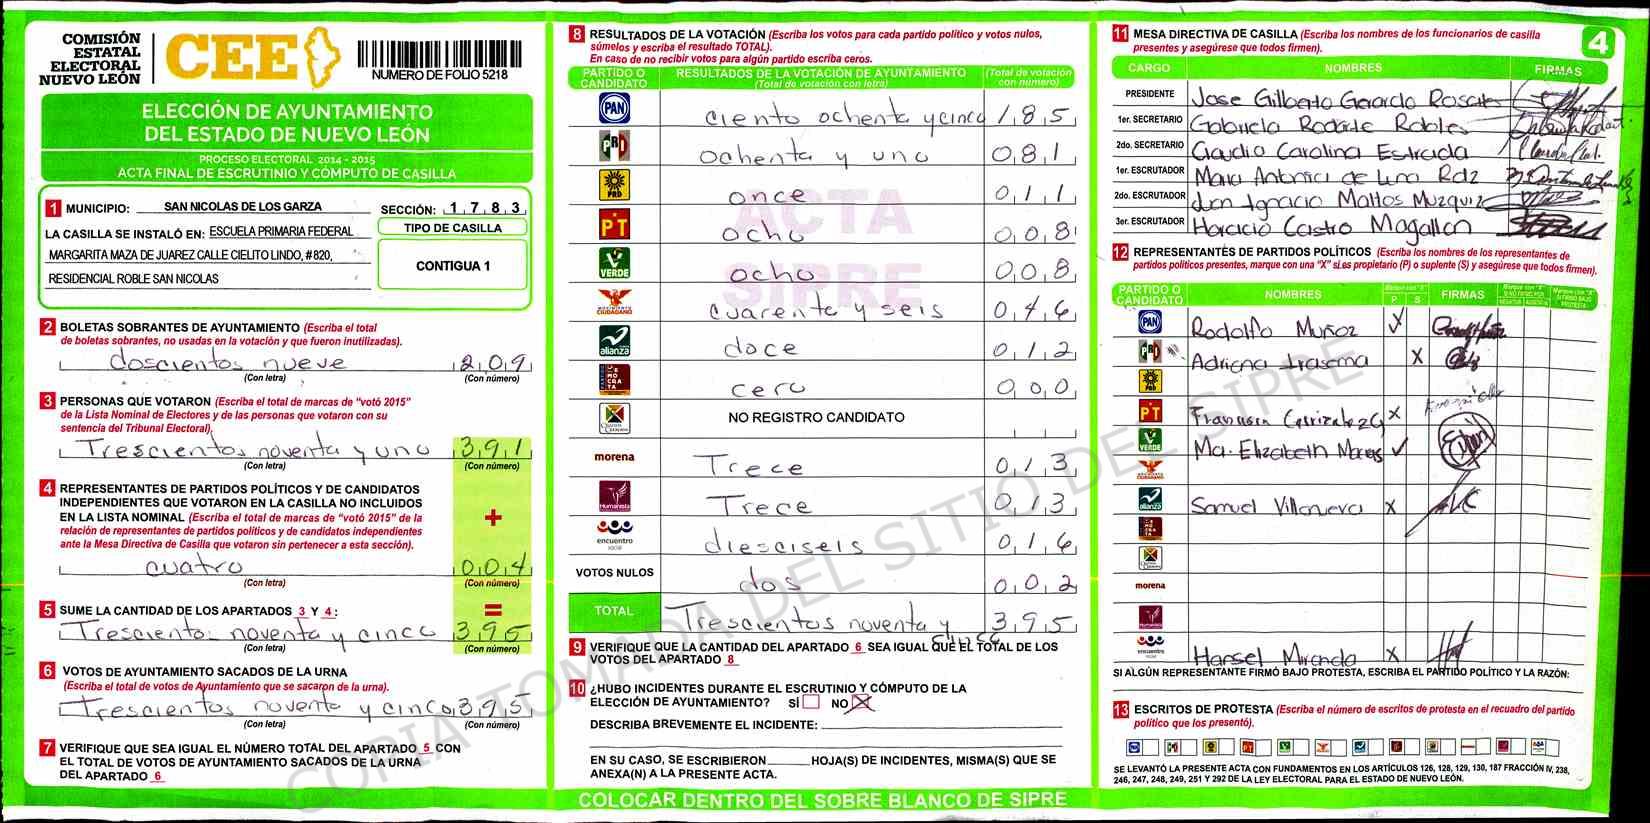 COMISIÓN
ESTATAL
ELECTORAL
NUEVO LEÓN
CEE
NUMERO DE FOLIO 5218
ELECCIÓN DE AYUNTAMIENTO
DEL ESTADO DE NUEVO LEÓN
PROCESO ELECTORAL 2014 - 2015
ACTA FINAL DE ESCRUTINIO Y CÓMPUTO DE CASILLA
1 MUNICIPIO: SAN NICOLAS DE LOS GARZA
SECCIÓN: 1,7,8,3
LA CASILLA SE INSTALÓ EN: ESCUELA PRIMARIA FEDERAL
MARGARITA MAZA DE JUAREZ CALLE CIELITO LINDO, #820,
RESIDENCIAL ROBLE SAN NICOLAS
TIPO DE CASILLA
CONTIGUA 1
2 BOLETAS SOBRANTES DE AYUNTAMIENTO (Escriba el total
de boletas sobrantes, no usadas en la votación y que fueron inutilizadas).
doscientos nueve 2,0,9
(Con letra) (Con número)
3 PERSONAS QUE VOTARON (Escriba el total de marcas de “votó 2015”
de la Lista Nominal de Electores y de las personas que votaron con su
sentencia del Tribunal Electoral).
Trescientos noventa y uno 3,9,1
(Con letra) (Con número)
4 REPRESENTANTES DE PARTIDOS POLÍTICOS Y DE CANDIDATOS
INDEPENDIENTES QUE VOTARON EN LA CASILLA NO INCLUIDOS
EN LA LISTA NOMINAL (Escriba el total de marcas de “votó 2015” de la
relación de representantes de partidos políticos y de candidatos independientes
ante la Mesa Directiva de Casilla que votaron sin pertenecer a esta sección).
+
cuatro 0,0,4
(Con letra) (Con número)
=
5 SUME LA CANTIDAD DE LOS APARTADOS 3 Y 4:
Trescientos noventa y cinco 3,9,5
(Con letra) (Con número)
6 VOTOS DE AYUNTAMIENTO SACADOS DE LA URNA
(Escriba el total de votos de Ayuntamiento que se sacaron de la urna).
Trescientos noventa y cinco 3,9,5
(Con letra) (Con número)
7 VERIFIQUE QUE SEA IGUAL EL NÚMERO TOTAL DEL APARTADO 5 CON
EL TOTAL DE VOTOS DE AYUNTAMIENTO SACADOS DE LA URNA
DEL APARTADO 6
8 RESULTADOS DE LA VOTACIÓN (Escriba los votos para cada partido político y votos nulos,
súmelos y escriba el resultado TOTAL).
En caso de no recibir votos para algún partido escriba ceros.
PARTIDO O CANDIDATO RESULTADOS DE LA VOTACIÓN DE AYUNTAMIENTO (Total de votación con letra) (Total de votación con número)
PAN ciento ochenta y cinco 1,8,5
PRI ochenta y uno 0,8,1
PRD once 0,1,1
PT ocho 0,0,8
VERDE ocho 0,0,8
CIUDADANO cuarenta y seis 0,4,6
alianza doce 0,1,2
DEMOCRATA cero 0,0,0
NO REGISTRO CANDIDATO
morena Trece 0,1,3
Humanista Trece 0,1,3
encuentro social diesciseis 0,1,6
VOTOS NULOS dos 0,0,2
TOTAL Trescientos noventa y cinco 3,9,5
ACTA
SIPRE
9 VERIFIQUE QUE LA CANTIDAD DEL APARTADO 6 SEA IGUAL QUE EL TOTAL DE LOS
VOTOS DEL APARTADO 8
10 ¿HUBO INCIDENTES DURANTE EL ESCRUTINIO Y CÓMPUTO DE LA
ELECCIÓN DE AYUNTAMIENTO? SÍ NO X
DESCRIBA BREVEMENTE EL INCIDENTE:
EN SU CASO, SE ESCRIBIERON HOJA(S) DE INCIDENTES, MISMA(S) QUE SE
ANEXA(N) A LA PRESENTE ACTA.
COLOCAR DENTRO DEL SOBRE BLANCO DE SIPRE
11 MESA DIRECTIVA DE CASILLA (Escriba los nombres de los funcionarios de casilla
presentes y asegúrese que todos firmen).
4
CARGO NOMBRES FIRMAS
PRESIDENTE Jose Gilberto Gerardo Rosales
1er. SECRETARIO Gabriela Rodarte Robles
2do. SECRETARIO Claudia Carolina Estrada
1er. ESCRUTADOR Maria Antonia de Luna Rdz
2do. ESCRUTADOR Juan Ignacio Mattos Muzquiz
3er. ESCRUTADOR Horacio Castro Magallon
12 REPRESENTANTES DE PARTIDOS POLÍTICOS (Escriba los nombres de los representantes de
partidos políticos presentes, marque con una “X” si es propietario (P) o suplente (S) y asegúrese que todos firmen).
PARTIDO O CANDIDATO NOMBRES Marque con "X" P S FIRMAS
PAN Rodolfo Muñoz X
PRI Adriana X
PRD
PT X
VERDE Ma. Elizabeth ✓
CIUDADANO
alianza Samuel Villanueva X
morena
Humanista
encuentro social Hansel Miranda X
SI ALGÚN REPRESENTANTE FIRMÓ BAJO PROTESTA, ESCRIBA EL PARTIDO POLÍTICO Y LA RAZÓN:
13 ESCRITOS DE PROTESTA (Escriba el número de escritos de protesta en el recuadro del partido
político que los presentó).
SE LEVANTÓ LA PRESENTE ACTA CON FUNDAMENTOS EN LOS ARTÍCULOS 126, 128, 129, 130, 187 FRACCIÓN IV, 238,
246, 247, 248, 249, 251 Y 292 DE LA LEY ELECTORAL PARA EL ESTADO DE NUEVO LEÓN.
COPIA TOMADA DEL SITIO DEL SIPRE